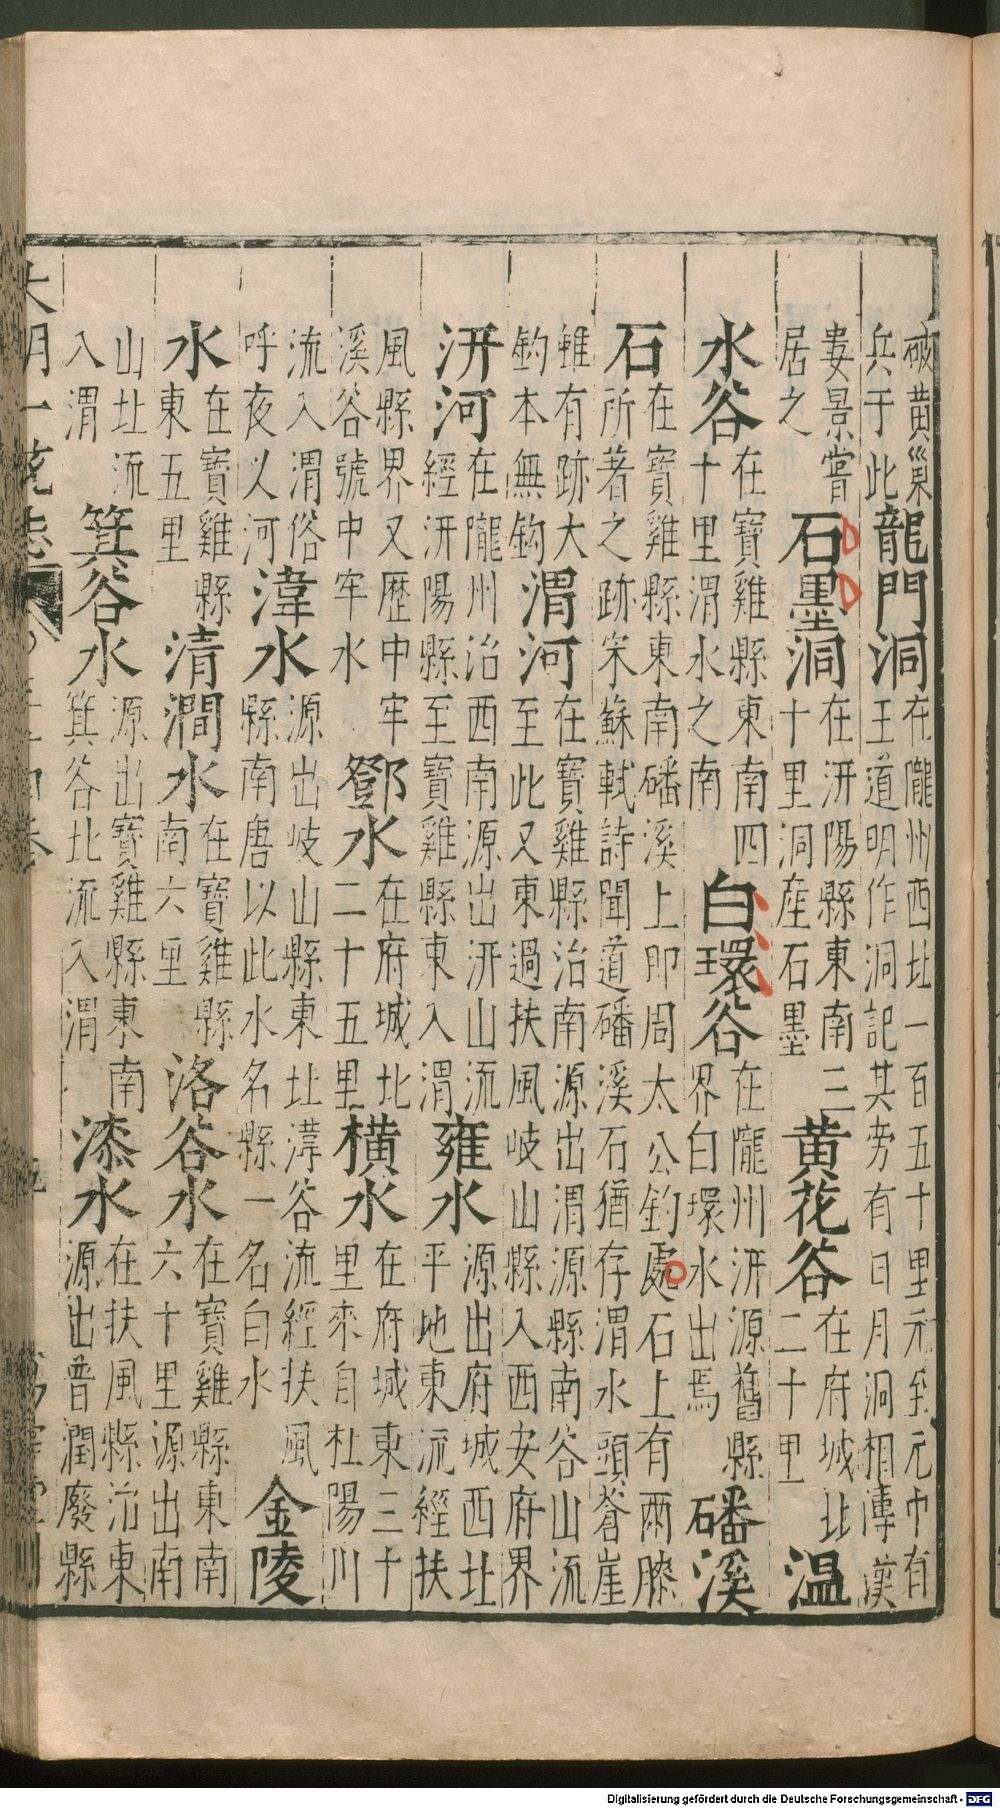 破黃巢
兵于此
龍門洞
在隴州西北一百五十里元至元中有
王道明作洞記其旁有日月洞相傳漢
婁景嘗
居之
石墨洞
在汧陽縣東南三
十里洞產石墨
黃花谷
在府城北
二十里
溫
水谷
在寶雞縣東南四
十里渭水之南
白環谷
在隴州汧源舊縣
界白環水出焉
磻溪
石
在寶雞縣東南磻溪上即周太公釣處石上有兩膝
所著之跡宋蘇軾詩聞道磻溪石猶存渭水頭蒼崖
雖有跡大
釣本無鈎
渭河
在寶雞縣治南源出渭源縣南谷山流
至此又東過扶風岐山縣入西安府界
汧河
在隴州治西南源出汧山流
經汧陽縣至寶雞縣東入渭
雍水
源出府城西北
平地東流經扶
風縣界又歷中牢
溪谷號中牢水
鄧水
在府城北
二十五里
橫水
在府城東三十
里來自杜陽川
流入渭俗
呼夜以河
湋水
源出岐山縣東北溝谷流經扶風
縣南唐以此水名縣一名白水
金陵
水
在寶雞縣
東五里
清澗水
在寶雞縣
南六里
洛谷水
在寶雞縣東南
六十里源出南
山北流
入渭
箕谷水
源出寶雞縣東南
箕谷北流入渭
漆水
在扶風縣治東
源出普潤廢縣
大明一統志
Digitalisierung gefördert durch die Deutsche Forschungsgemeinschaft - DFG